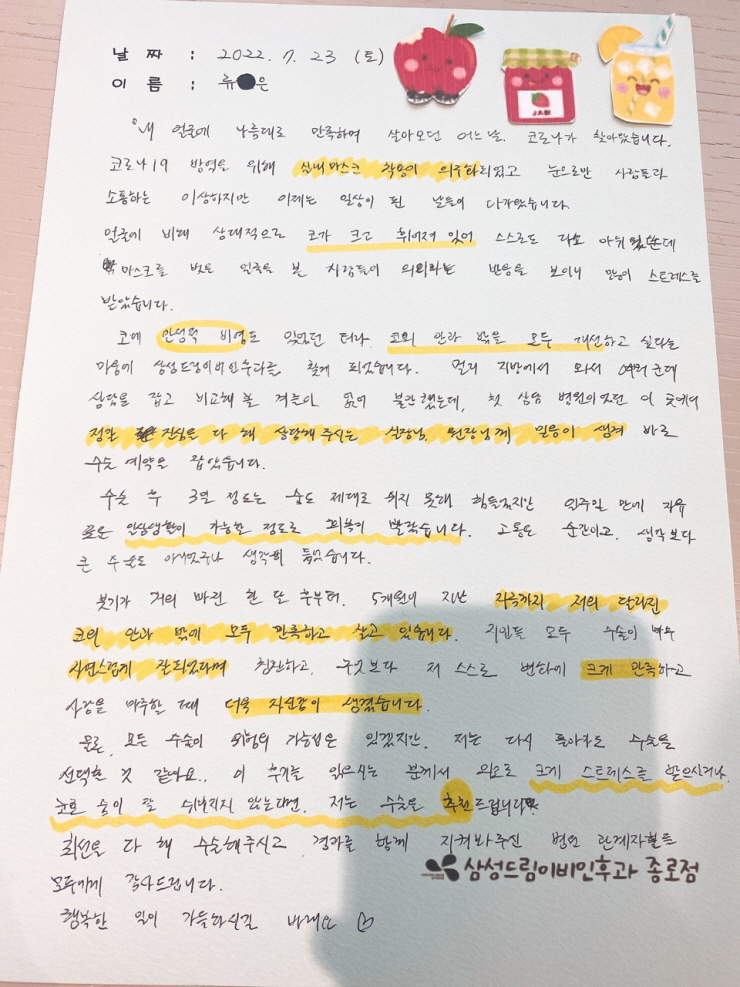 날 짜 : 2022. 7. 23 (토)
이 름 : 류●은
JAM
내 얼굴에 나름대로 만족하며 살아오던 어느날, 코로나가 찾아왔습니다.
코로나19 방역을 위해 실내마스크 착용이 의무화되었고 눈으로만 사람들과
소통하는 이상하지만 이제는 일상이 된 날들이 다가왔습니다
얼굴에 비해 상대적으로 코가 크고 휘어져 있어 스스로도 다소 아쉬웠는데
마스크를 벗은 얼굴을 본 사람들이 의외라는 반응을 보이니 많이 스트레스를
받았습니다.
코에 만성적 비염도 있었던 터라, 코의 안과 밖을 모두 개선하고 싶다는
마음에 삼성드림이비인후과를 찾게 되었습니다. 멀리 지방에서 와서 여러군데
상담을 잡고 비교해 볼 겨를이 없어 불안했는데, 첫 상담 병원이었던 이 곳에서
정말 진심을 다 해 상담해주시는 실장님, 원장님께 믿음이 생겨 바로
수술 예약을 잡았습니다.
수술 후 3일 정도는 숨도 제대로 쉬지 못해 힘들었지만 일주일 만에 자유
로운 일상생활이 가능한 정도로 회복이 빨랐습니다. 고통은 순간이고, 생각보다
큰 수술도 아니었구나 생각이 들었습니다.
붓기가 거의 빠진 한 달 후부터, 5개월이 지난 지금까지 저의 달라진
코의 안과 밖에 모두 만족하고 살고 있습니다. 지인들 모두 수술이 매우
자연스럽게 잘되었다며 칭찬하고, 무엇보다 저 스스로 변화에 크게 만족하고
사람을 마주할 때 더욱 자신감이 생겼습니다.
물론, 모든 수술이 위험의 가능성은 있겠지만, 저는 다시 돌아가도 수술을
선택할 것 같아요. 이 후기를 읽으시는 분께서 외모로 크게 스트레스를 받으시거나,
코로 숨이 잘 쉬어지지 않는다면, 저는 수술을 추천드립니다.
최선을 다 해 수술해주시고 경과를 함께 지켜봐주신 병원 관계자분들
모두에게 감사드립니다.
삼성드림이비인후과 종로점
행복한 일이 가득하시길 바래요